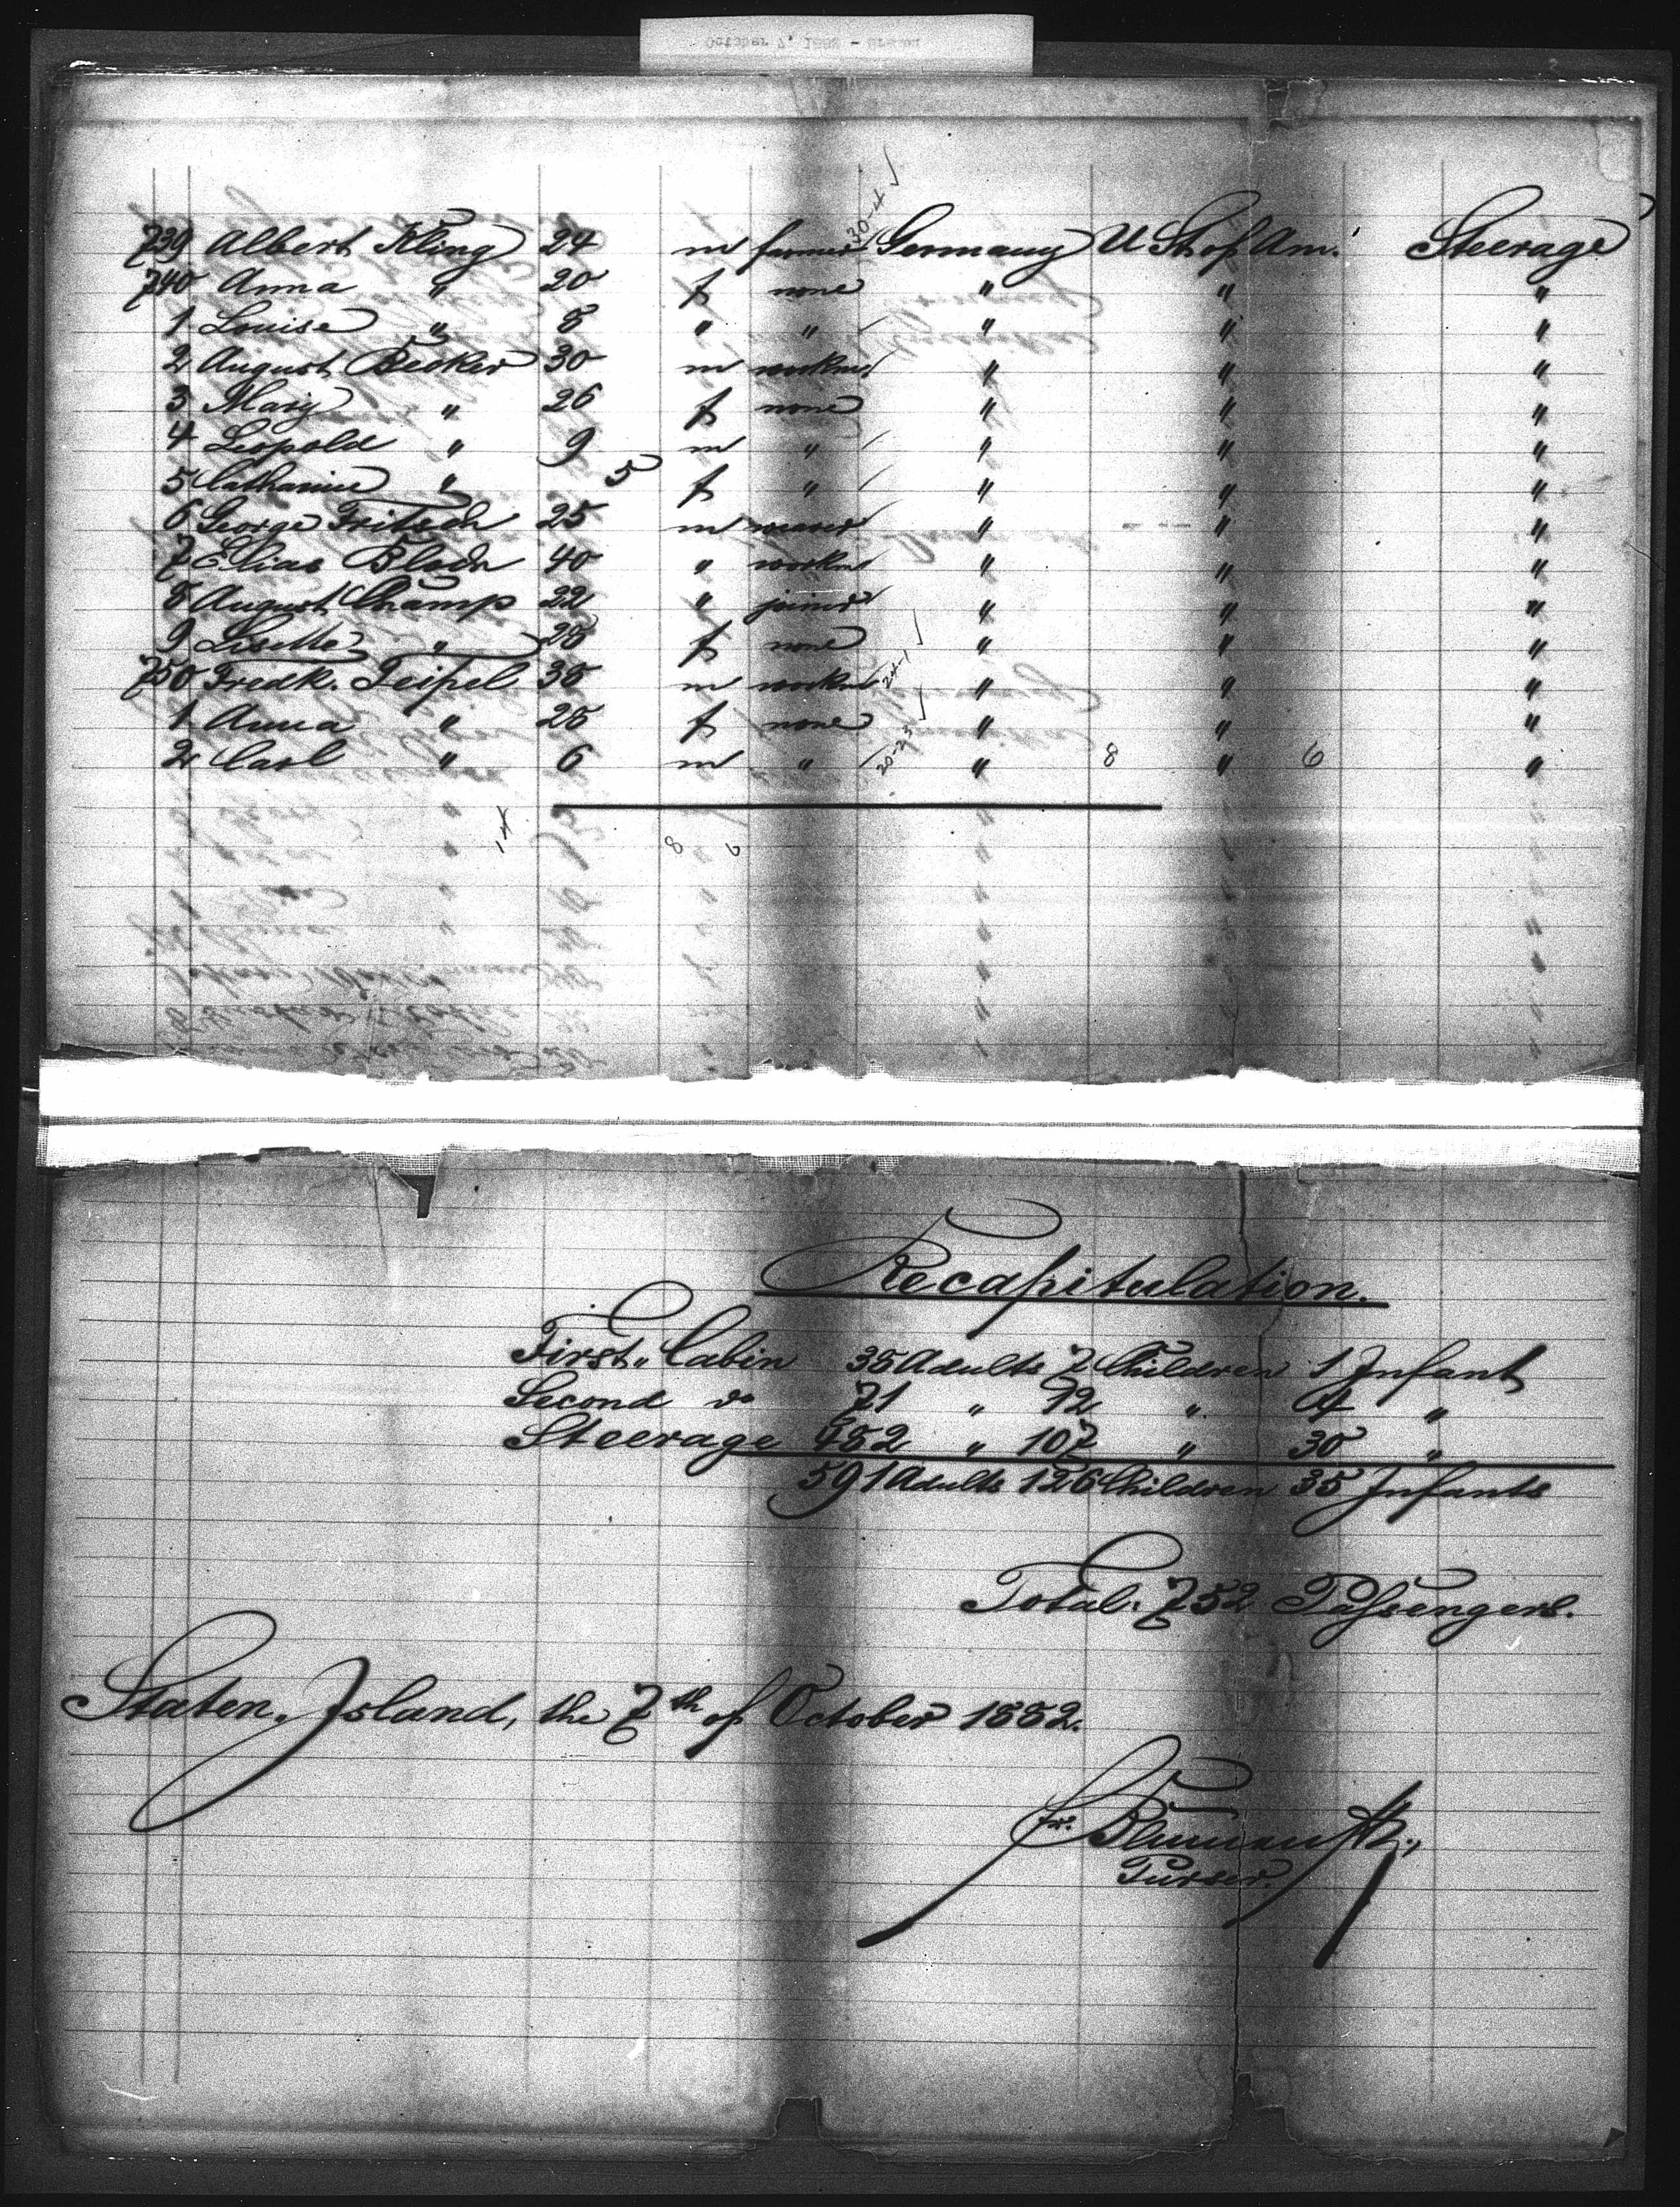 739 Albert Kling 24 m farmer Germany U St of Am. Steerage
740 Anna " 20 f none " " "
1 Louise " 8 " " " " "
2 August Becker 30 m workm " " "
3 Mary " 26 f none " " "
4 Leopold " 9 m " " " "
5 Catharine " 5 f " " " "
6 George Fritsch 25 m weaver " " "
7 Elias Bloch 40 " workm " " "
8 August Champ 22 " joiner " " "
9 Lisette " 28 f none " " "
750 Fredk. Feipel 38 m workm " " "
1 Anna " 28 f none " " "
2 Carl " 6 m " " 8 " 6 "
14 8 6
Recapitulation.
First " Cabin 38 Adults 7 Children 1 Infant
Second do 71 " 12 " 4 "
Steerage 482 " 107 " 30 "
591 Adults 126 Children 35 Infants
Total. 752 Passengers.
Staten. Island, the 7th of October 1882.
Purser.